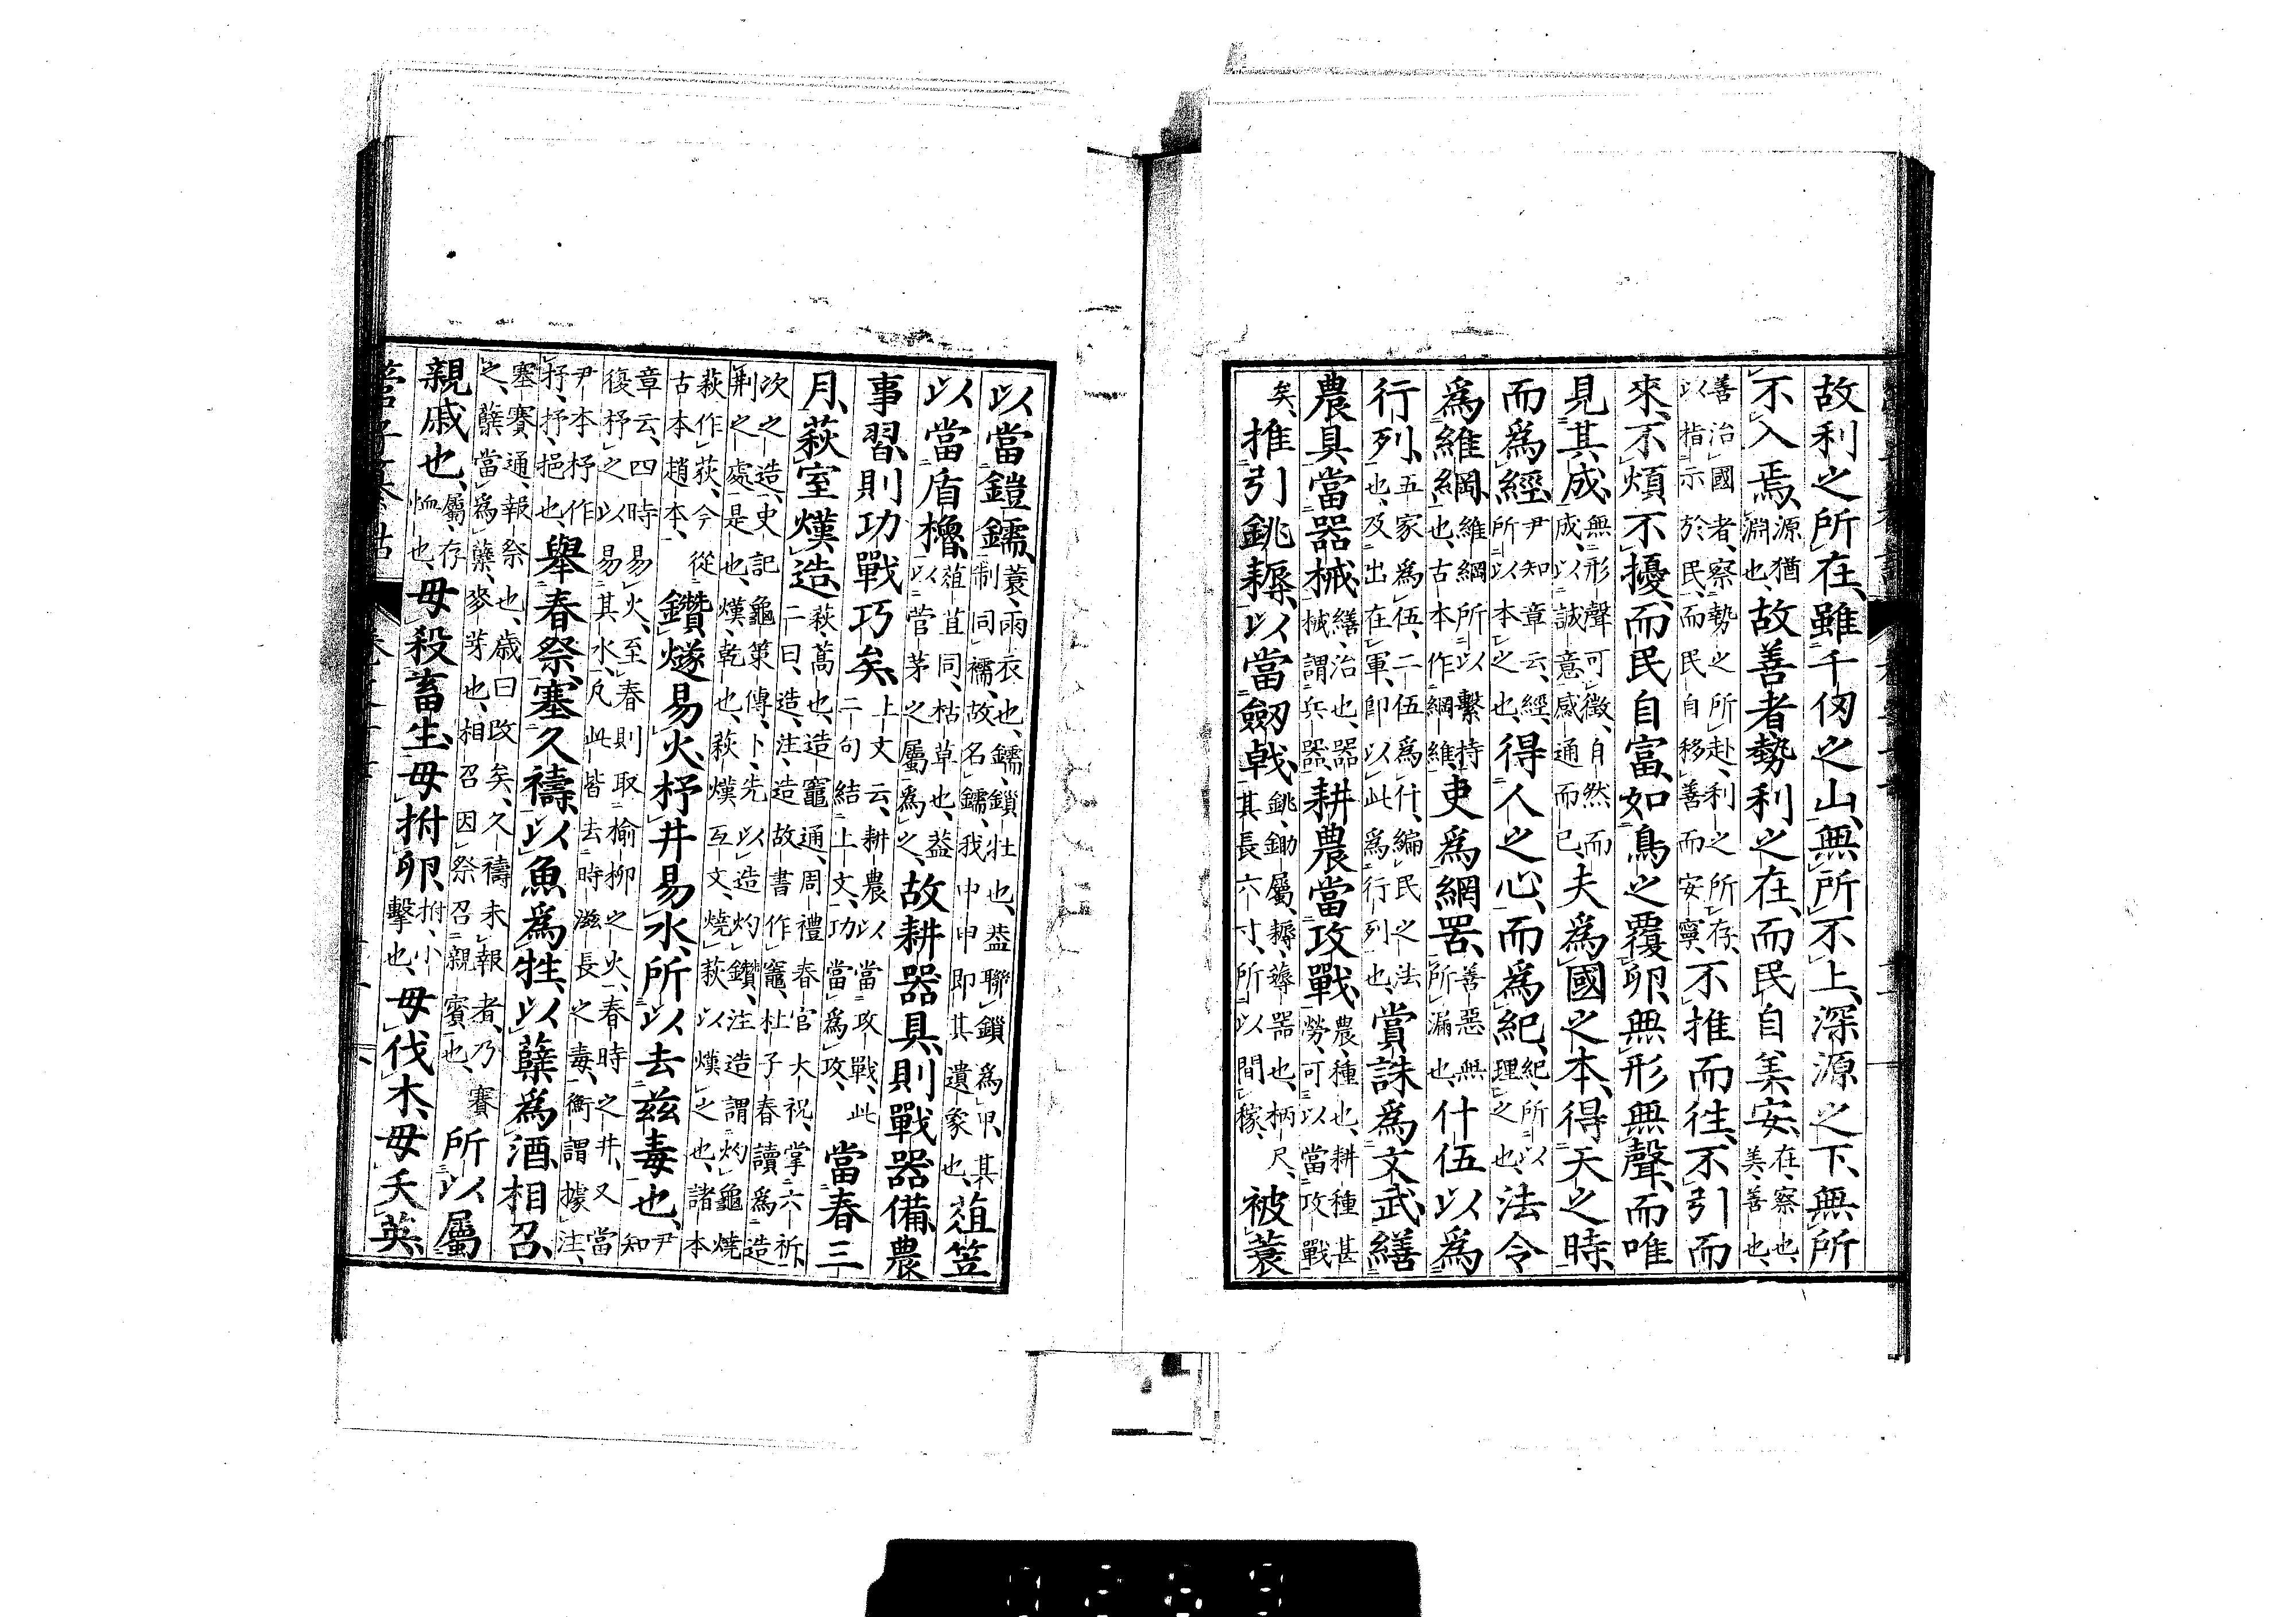 故利之所在、雖千仞之山、無所不上、深源之下、無所
不入焉、源猶淵也、故善者勢利之在、而民自美安、在、察也、美、善也、
善治國者、察勢之所赴、利之所存、以指示於民、而民自移善而安寧、不推而往、不引而
來、不煩不擾、而民自富、如鳥之覆卵、無形無聲、而唯
見其成、無形聲可徵、自然而成、以誠意感通而已、夫爲國之本、得天之時、
而爲經、尹知章云、經、所以本之也、得人之心、而爲紀、紀、所以理之也、法令
爲維綱、維綱所以繫持也、古本作綱維、吏爲網罟、善惡無所漏也、什伍以爲
行列、五家爲伍、二伍爲什、編民之法也、及出在軍、卽以此爲行列也、賞誅爲文武、繕
農具當器械、繕、治也、器械謂兵器、耕農當攻戰、農、種也、耕種甚勞、可以當攻戰
矣、推引銚耨、以當劒戟、銚、鋤屬、耨、薅器也、柄尺、其長六寸、所以間稼、被蓑
以當鎧鑐、蓑、雨衣也、鑐、鎖牡也、蓋聯鎖爲甲、其制同襦、故名鑐、我中甲即其遺象也、菹笠
以當盾櫓、菹苴同、枯草也、蓋以菅茅之屬爲之、故耕器具、則戰器備、農
事習、則功戰巧矣、上文云、耕農以當攻戰、此二句結上文、功當爲攻、當春三
月、萩室熯造、萩、蒿也、造竈通、周禮春官大祝、掌六祈、二曰、造、注、造故書作竈、杜子春讀爲造
次之造、史記龜策傳、卜先以造灼鑽、注造謂灼龜燒荆之處是也、熯、乾也、萩熯互文、燒萩以熯之也、諸本
萩作荻、今從古本趙本、鑽燧易火、杼井易水、所以去茲毒也、尹知
章云、四時易火、至春則取榆柳之火、春時之井、又當復杼之以易其水、凡此皆去時滋長之毒、衡謂據注、
尹本杼作抒、抒、挹也、舉春祭、塞久禱、以魚爲牲、以糵爲酒、相召、
塞賽通、報祭也、歲曰改矣、久禱未報者、乃賽之、糵當爲櫱、麥芽也、相召因祭召親賓也、所以屬
親戚也、屬、存恤也、毋殺畜生、毋拊卵、拊、小擊也、毋伐木、毋夭英、